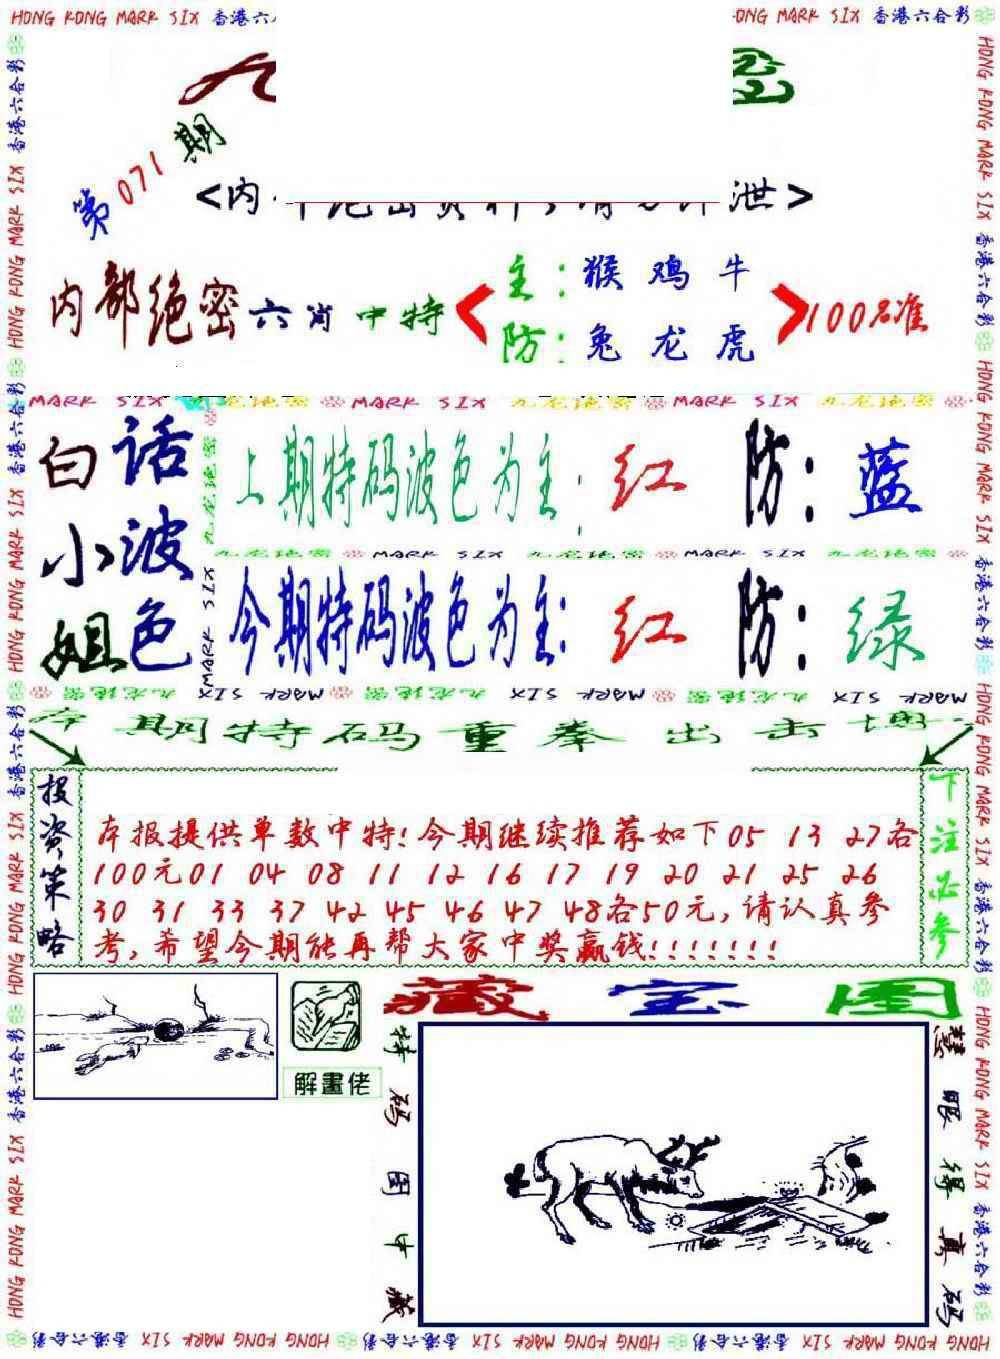 HONG KONG MARK SIX 香港六合彩
第071期
<内
泄>
内部绝密六肖中特
主:猴 鸡 牛
防:兔 龙 虎
100%准
MARK SIX 九龙绝密 MARK SIX 九龙绝密 MARK SIX 九龙绝密
白小姐
话波色
上期特码波色为主:红 防:蓝
九龙绝密 MARK SIX 九龙绝密 MARK SIX 九龙绝密
今期特码波色为主:红 防:绿
九龙绝密 MARK SIX 九龙绝密 MARK SIX 九龙绝密 MARK SIX
本期特码重拳出击
投资策略
本报提供单数中特!今期继续推荐如下05 13 27各
100元01 04 08 11 12 16 17 19 20 21 25 26
30 31 33 37 42 45 46 47 48各50元,请认真参
考,希望今期能再帮大家中奖赢钱!!!!!!!
下注必参
解畫佬
藏宝图
特码图中藏
慧眼得真码
HONG KONG MARK SIX 香港六合彩